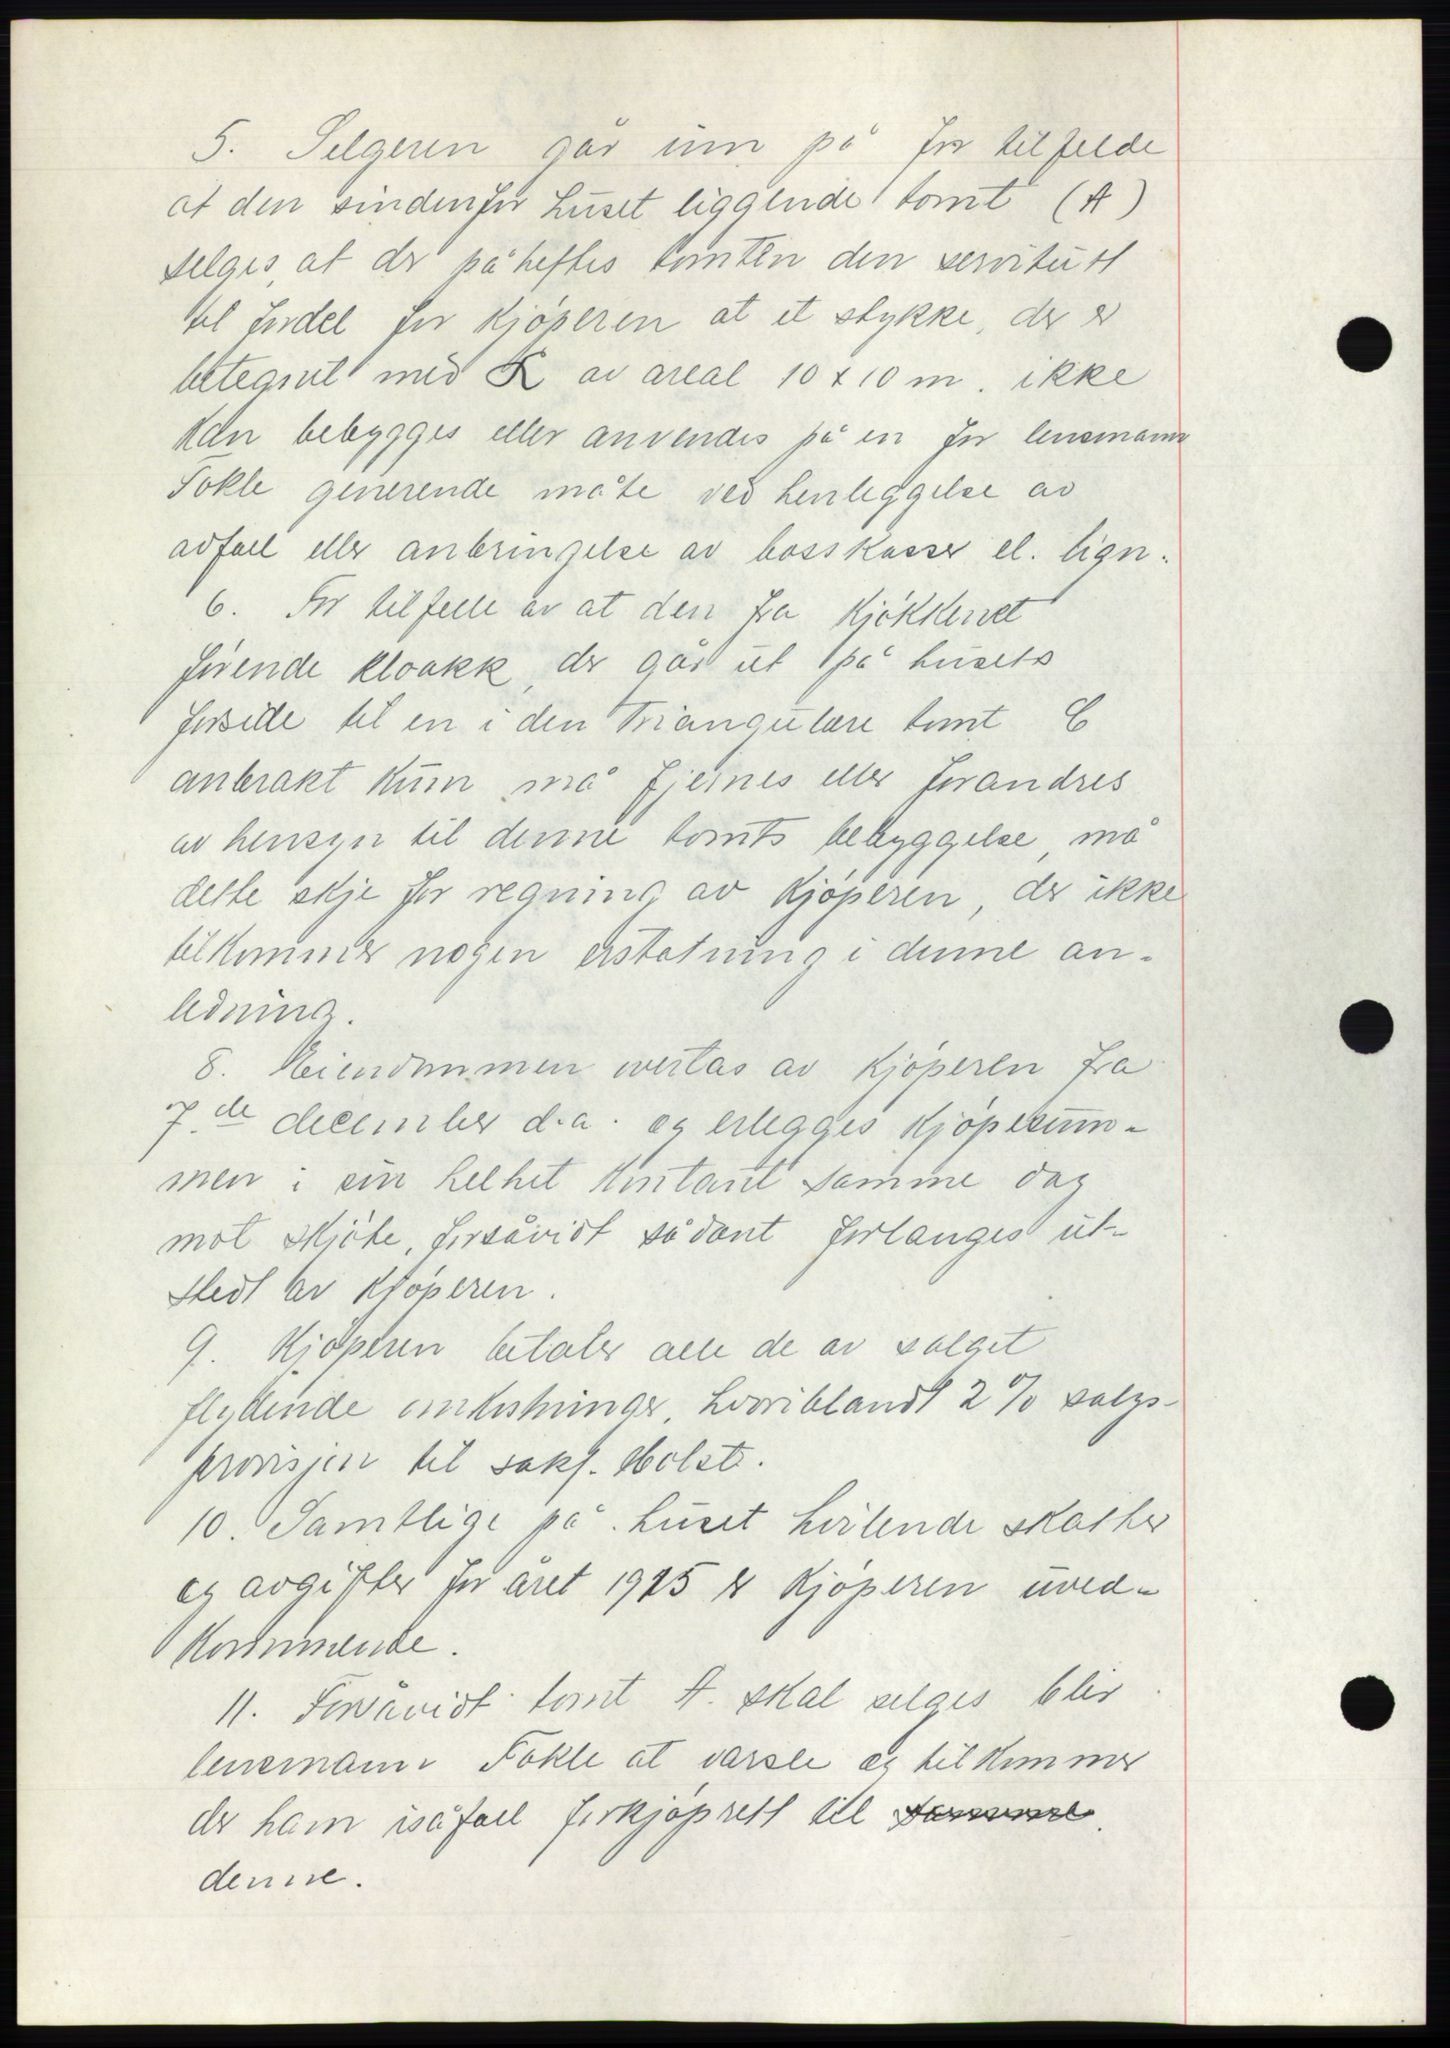 5. Selgeren går inn på for tilfelde
at den sindenfor huset liggende tomt (A)
selges, at der påheftes tomten den servitutt
til fordel for Kjöperen at et stykke, der er
betegnet med K av areal 10 x 10 m. ikke
kan bebygges eller anvendes på en for lensmann
Fokle generende måte ved henleggelse av
avfall eller anbringelse av bosskasser el. lign.
6. For tilfelle av at den fra Kjökkenet
förende kloakk, der går ut på husets
forside til en i den triangulære tomt C
anbrakt kum må fjernes eller forandres
av hensyn til denne tomts bebyggelse, må
dette skje for regning av Kjöperen, der ikke
tilkommer nogen erstatning i denne an-
ledning.
8. Eiendommen overtas av Kjöperen fra
7.de december d.a. og erlegges Kjöpesum-
men i sin helhet kontant samme dag
mot skjöte, forsåvidt sådant forlanges ut-
stedt av Kjöperen.
9. Kjöperen betaler alle de av salget
flydende omkostninger, hvoriblandt 2% salgs-
provisjon til sakf. Holst.
10. Samtlige på huset hvilende skatter
og avgifter for året 1925 er Kjöperen uved-
kommende.
11. Forsåvidt tomt A. skal selges blir
lensmann Fokle at varsle og tilkommer
der ham isåfall forkjöpsrett til samme.
denne.